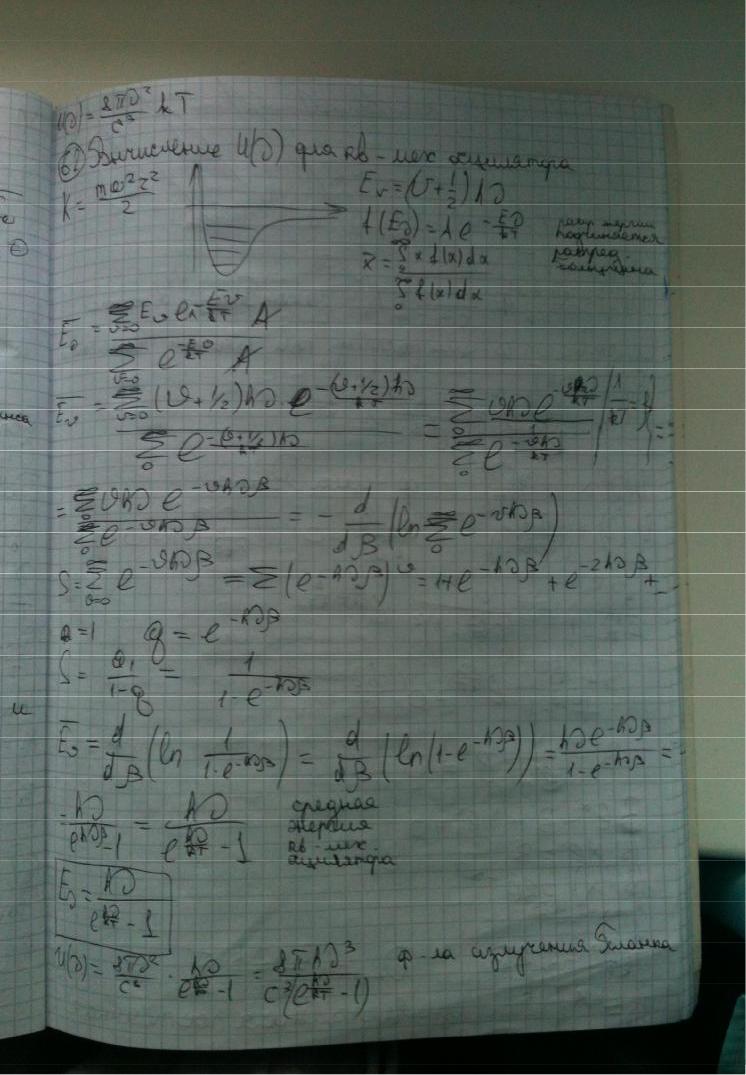 U(ν) = 8πν²/c³ kT
б) Вычисление U(ν) для кв-мех осцилятора
K = mω²r²/2
E_v = (v + 1/2) hν
f(E_v) = A e^(-E_v/kT)
распр. энергии
подчиняется
распред.
Больцмана
x̄ = ∫x f(x) dx / ∫f(x) dx
Ē_v = Σ E_v e^(-E_v/kT) A / Σ e^(-E_v/kT) A
Ē_v = Σ (v + 1/2) hν e^(-(v+1/2)hν/kT) / Σ e^(-(v+1/2)hν/kT) = Σ vhν e^(-vhν/kT) / Σ e^(-vhν/kT) | 1/kT = β | =
= Σ vhν e^(-vhνβ) / Σ e^(-vhνβ) = - d/dβ (ln Σ e^(-vhνβ))
S = Σ e^(-vhνβ) = Σ (e^(-hνβ))^v = 1 + e^(-hνβ) + e^(-2hνβ) + ...
a = 1 q = e^(-hνβ)
S = a₁/(1-q) = 1/(1 - e^(-hνβ))
Ē_v = d/dβ (ln 1/(1 - e^(-hνβ))) = d/dβ (ln(1 - e^(-hνβ))) = hν e^(-hνβ)/(1 - e^(-hνβ)) =
hν/(e^(hνβ) - 1) = hν/(e^(hν/kT) - 1)
средная
энергия
кв-мех.
осцилятора
Ē_v = hν/(e^(hν/kT) - 1)
U(ν) = 8πν²/c³ · hν/(e^(hν/kT) - 1) = 8πhν³/(c³(e^(hν/kT) - 1)) ф-ла излучения Планка